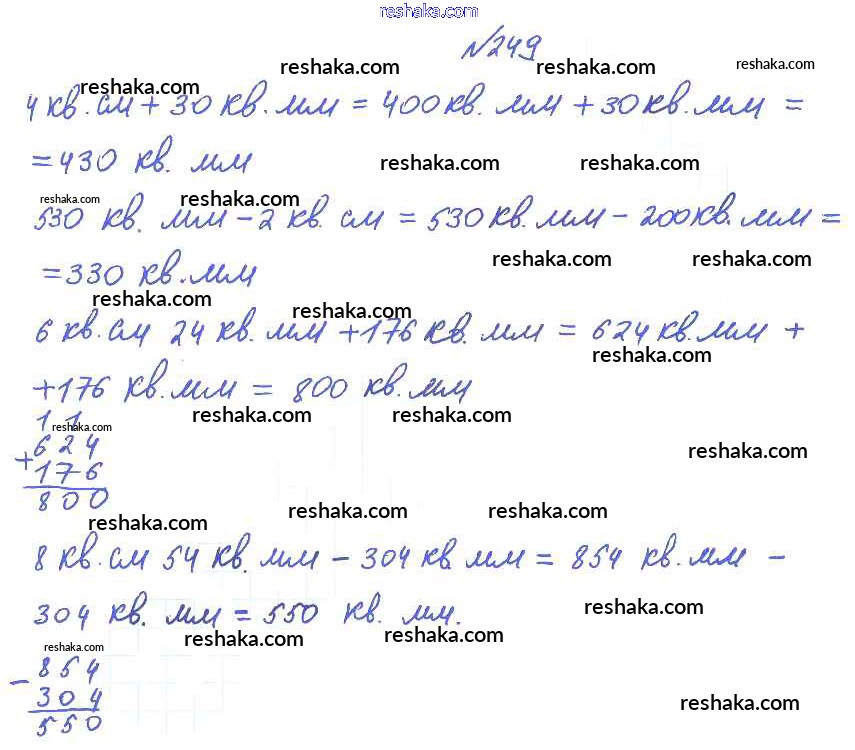 reshaka.com
№249
reshaka.com reshaka.com reshaka.com reshaka.com
4 кв. см + 30 кв. мм = 400 кв. мм + 30 кв. мм =
= 430 кв. мм
reshaka.com reshaka.com
reshaka.com reshaka.com
530 кв. мм - 2 кв. см = 530 кв. мм - 200 кв. мм =
reshaka.com reshaka.com
= 330 кв. мм
reshaka.com reshaka.com
6 кв. см 24 кв. мм + 176 кв. мм = 624 кв. мм +
reshaka.com
+ 176 кв. мм = 800 кв. мм
reshaka.com reshaka.com
1 1
reshaka.com
+ 624
176
800
reshaka.com
reshaka.com reshaka.com
reshaka.com
8 кв. см 54 кв. мм - 304 кв мм = 854 кв. мм -
reshaka.com
304 кв. мм = 550 кв. мм.
reshaka.com reshaka.com
reshaka.com
- 854
304
550
reshaka.com